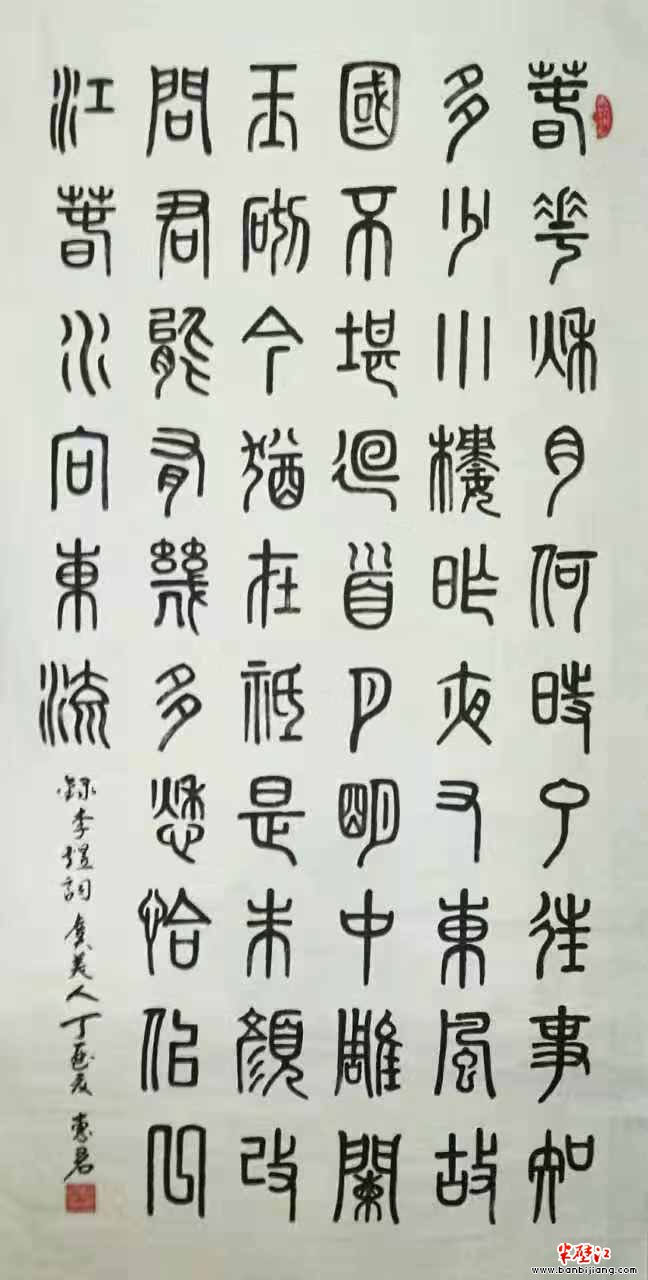 春花秋月何時了往事知
多少小樓昨夜又東風故
國不堪迴首月明中雕闌
玉砌今猶在祇是朱顏改
問君能有幾多愁恰似
江春水向東流
錄李煜詞虞美人丁酉夏 惠君
半壁江
www.banbijiang.com